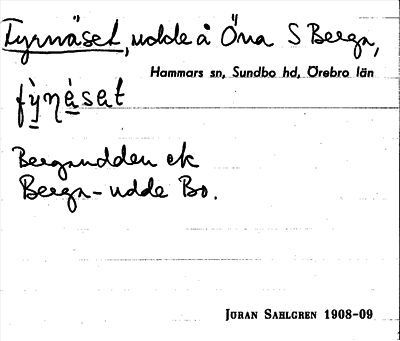 Tyrnäset, udde å Öna S Berga,
Hammars sn, Sundbo hd, Örebro län
Bergaudden ek
Berga-udde Bo.
JÖRAN SAHLGREN 1908-09